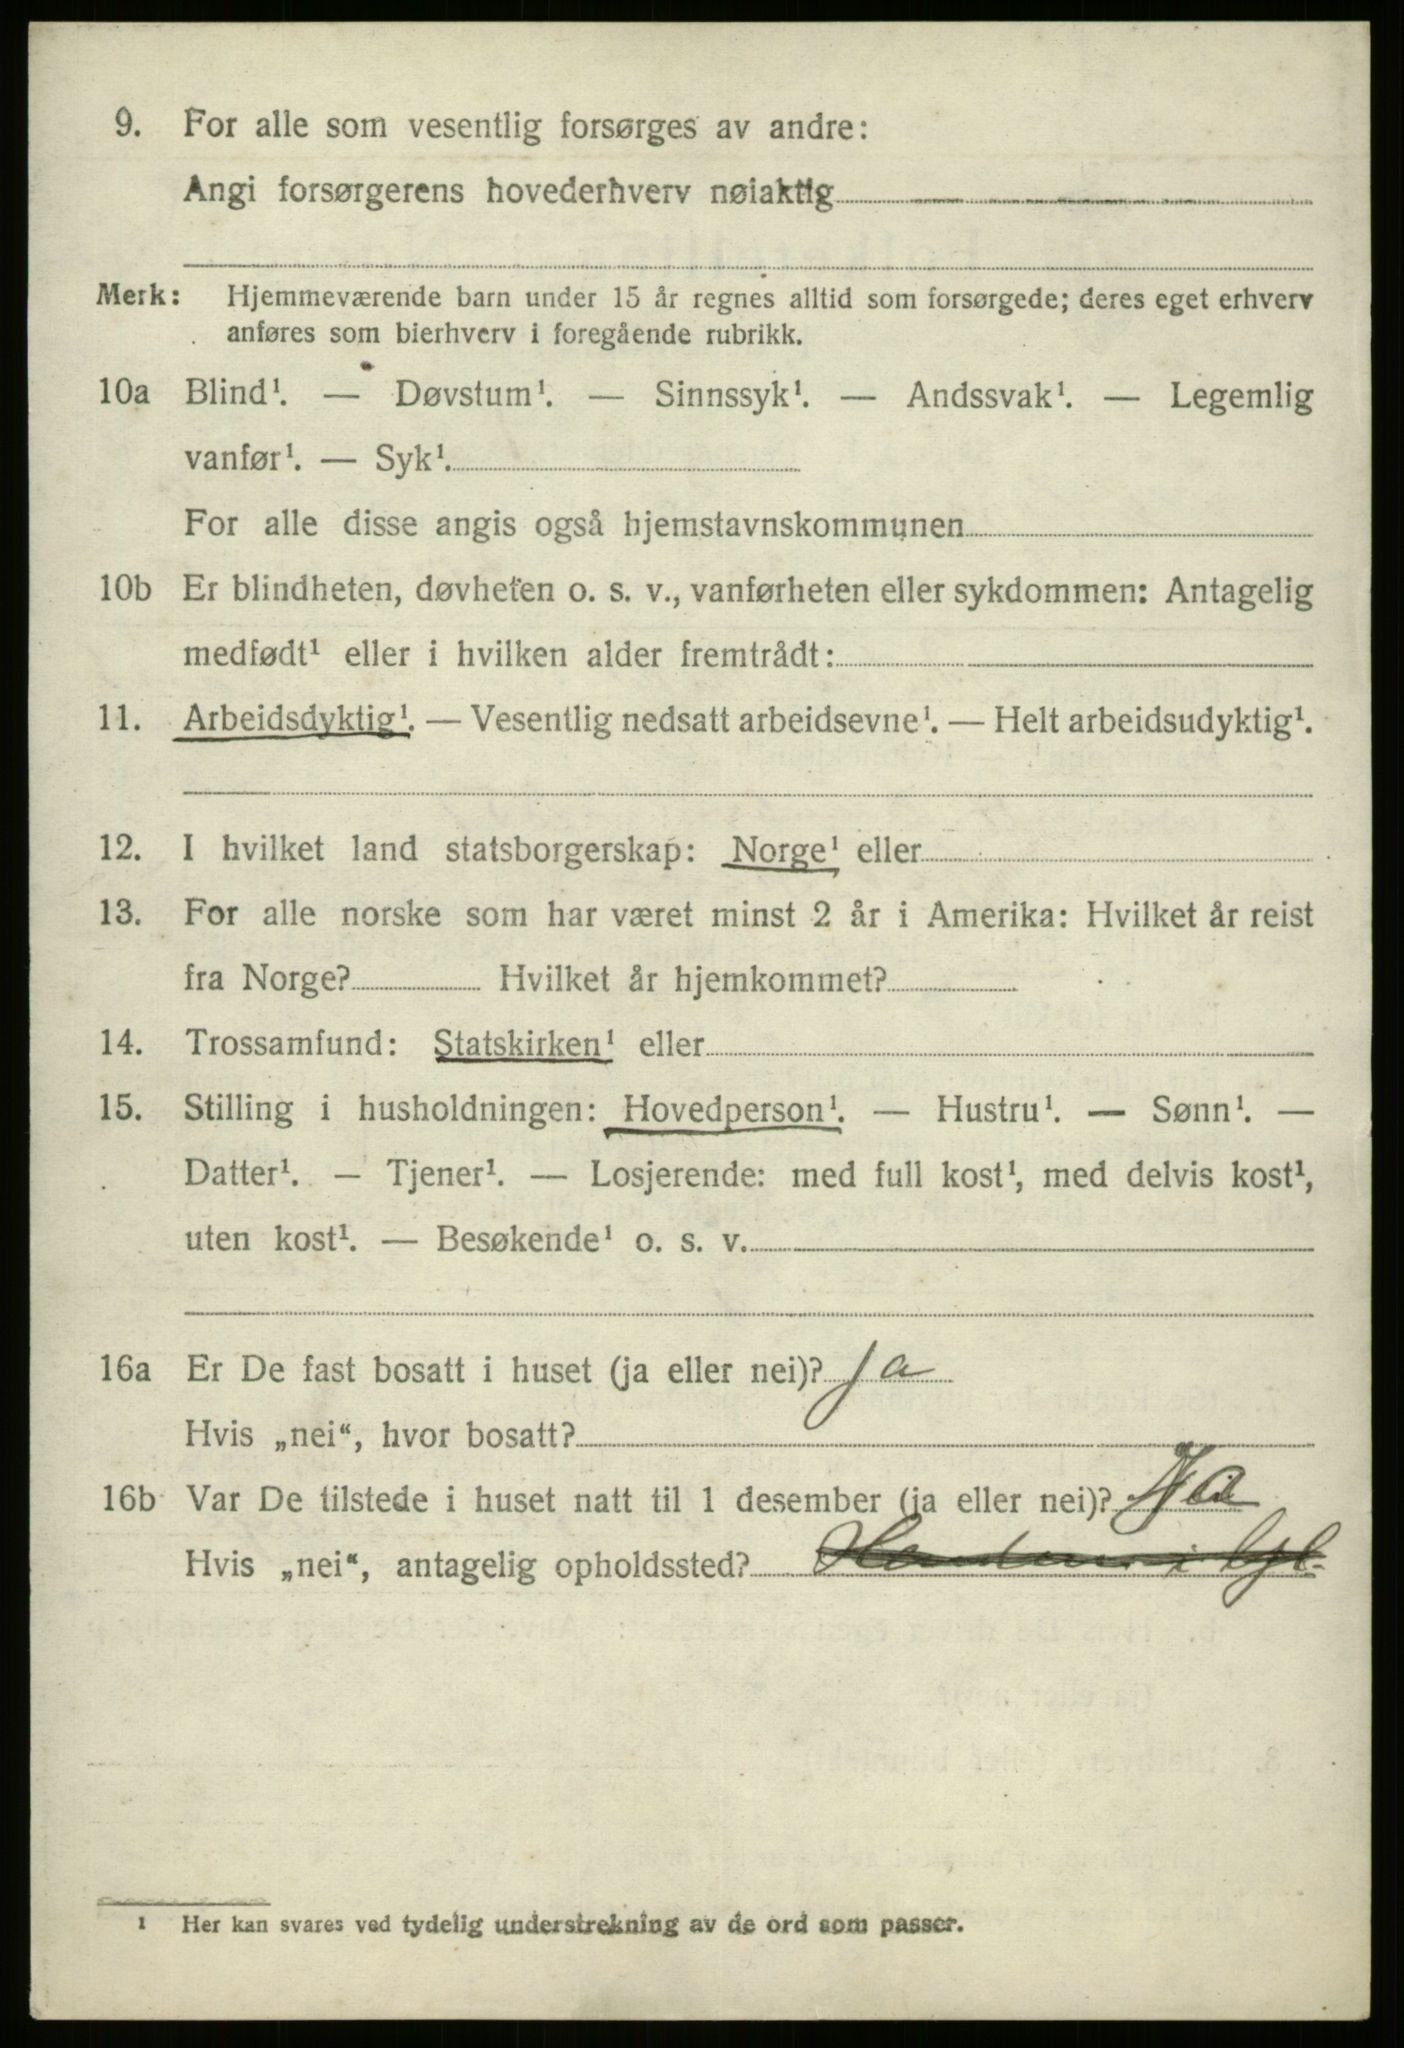 9. For alle som vesentlig forsørges av andre:
Angi forsørgerens hovederhverv nøiaktig
Merk: Hjemmeværende barn under 15 år regnes alltid som forsørgede; deres eget erhverv
anføres som bierhverv i foregående rubrikk.
10a Blind¹. — Døvstum¹. — Sinnssyk¹. — Andssvak¹. — Legemlig
vanfør¹. — Syk¹.
For alle disse angis også hjemstavnskommunen
10b Er blindheten, døvheten o. s. v., vanførheten eller sykdommen: Antagelig
medfødt¹ eller i hvilken alder fremtrådt:
11. Arbeidsdyktig¹. — Vesentlig nedsatt arbeidsevne¹. — Helt arbeidsudyktig¹.
12. I hvilket land statsborgerskap: Norge¹ eller
13. For alle norske som har været minst 2 år i Amerika: Hvilket år reist
fra Norge? Hvilket år hjemkommet?
14. Trossamfund: Statskirken¹ eller
15. Stilling i husholdningen: Hovedperson¹. — Hustru¹. — Sønn¹. —
Datter¹. — Tjener¹. — Losjerende: med full kost¹, med delvis kost¹,
uten kost¹. — Besøkende¹ o. s. v.
16a Er De fast bosatt i huset (ja eller nei)? ja
Hvis „nei“, hvor bosatt?
16b Var De tilstede i huset natt til 1 desember (ja eller nei)? Ja
Hvis „nei“, antagelig opholdssted?
1 Her kan svares ved tydelig understrekning av de ord som passer.